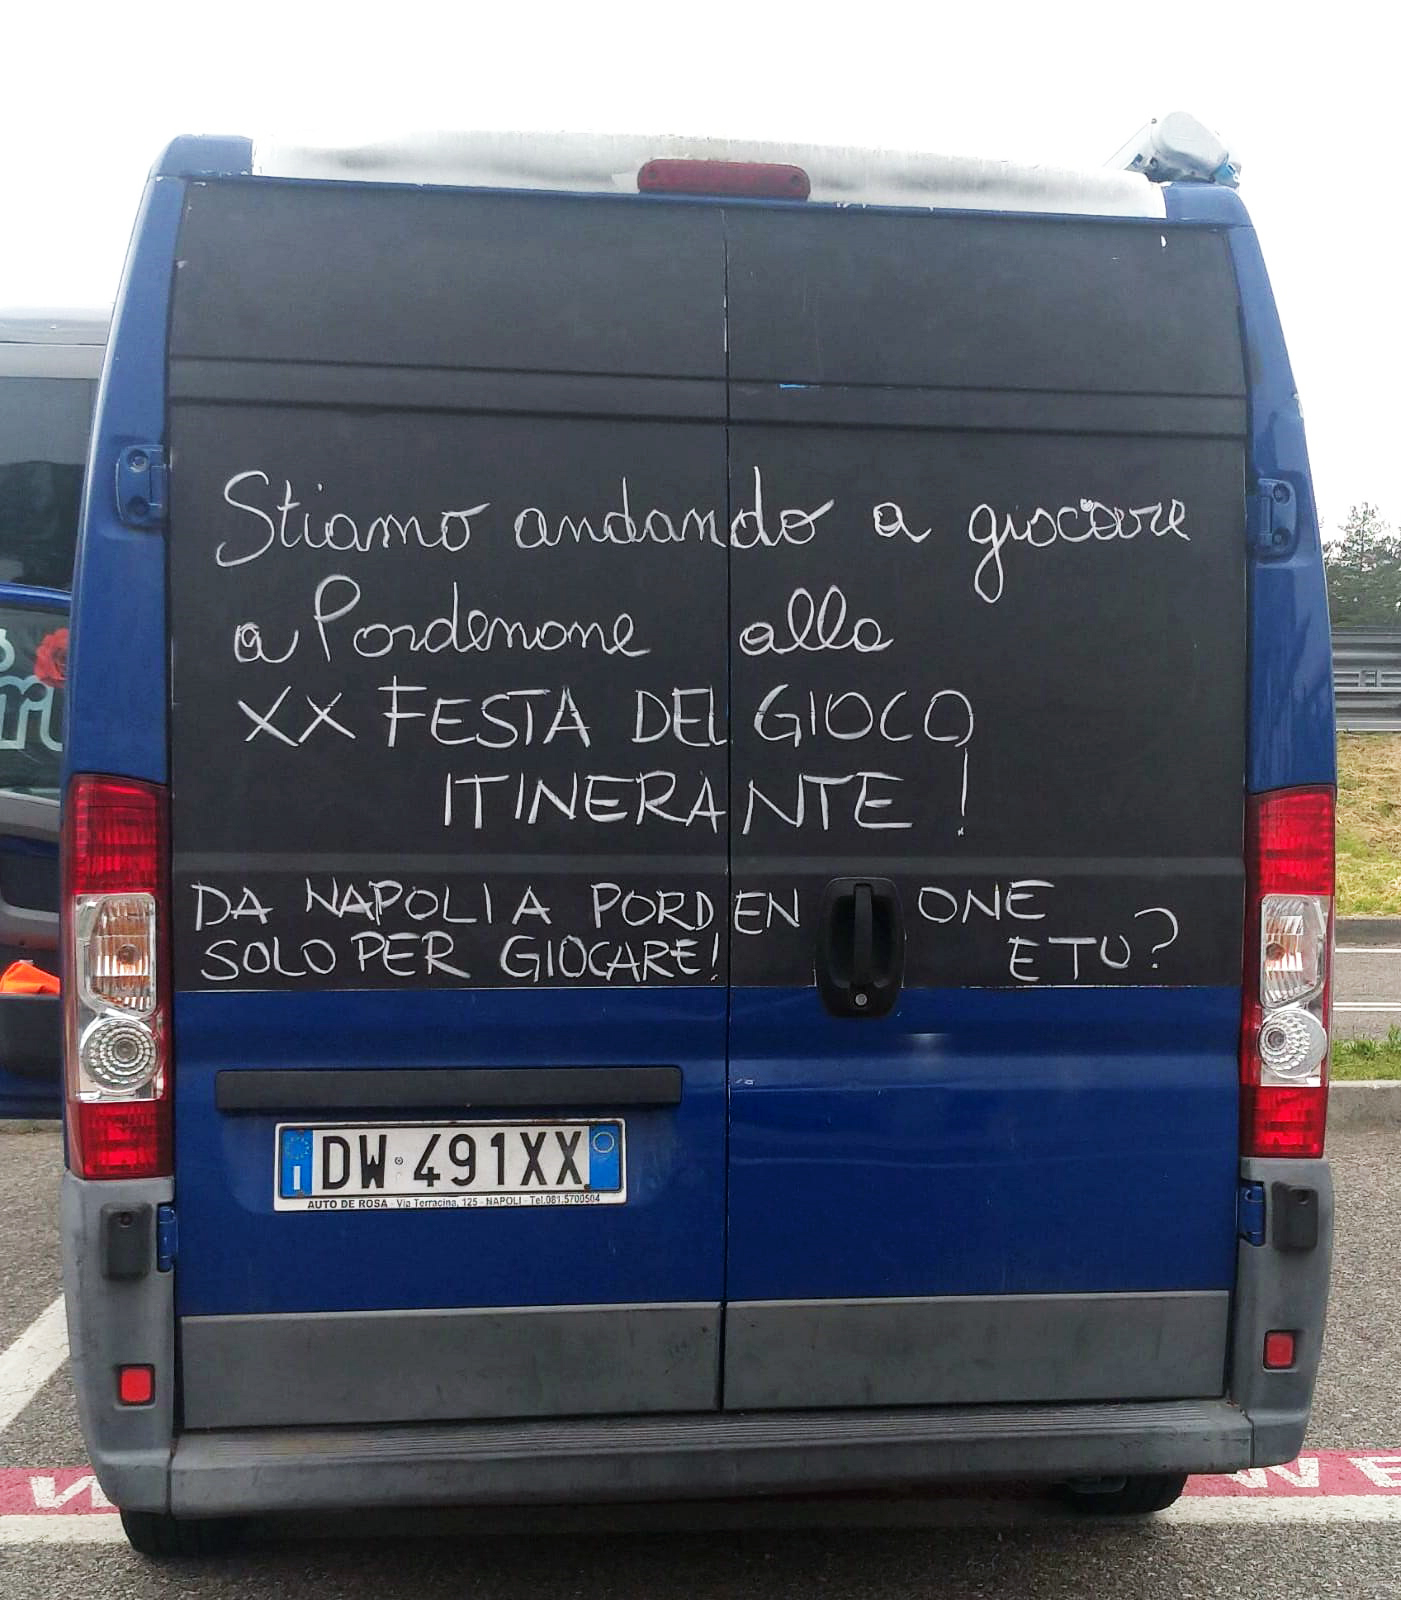 Stiamo andando a giocare
a Pordenone alla
XX FESTA DEL GIOCO
ITINERANTE!
DA NAPOLI A PORDENONE
SOLO PER GIOCARE! E TU?
DW 491XX
I
AUTO DE ROSA - Via Terracina, 125 - NAPOLI - Tel.081.5700504